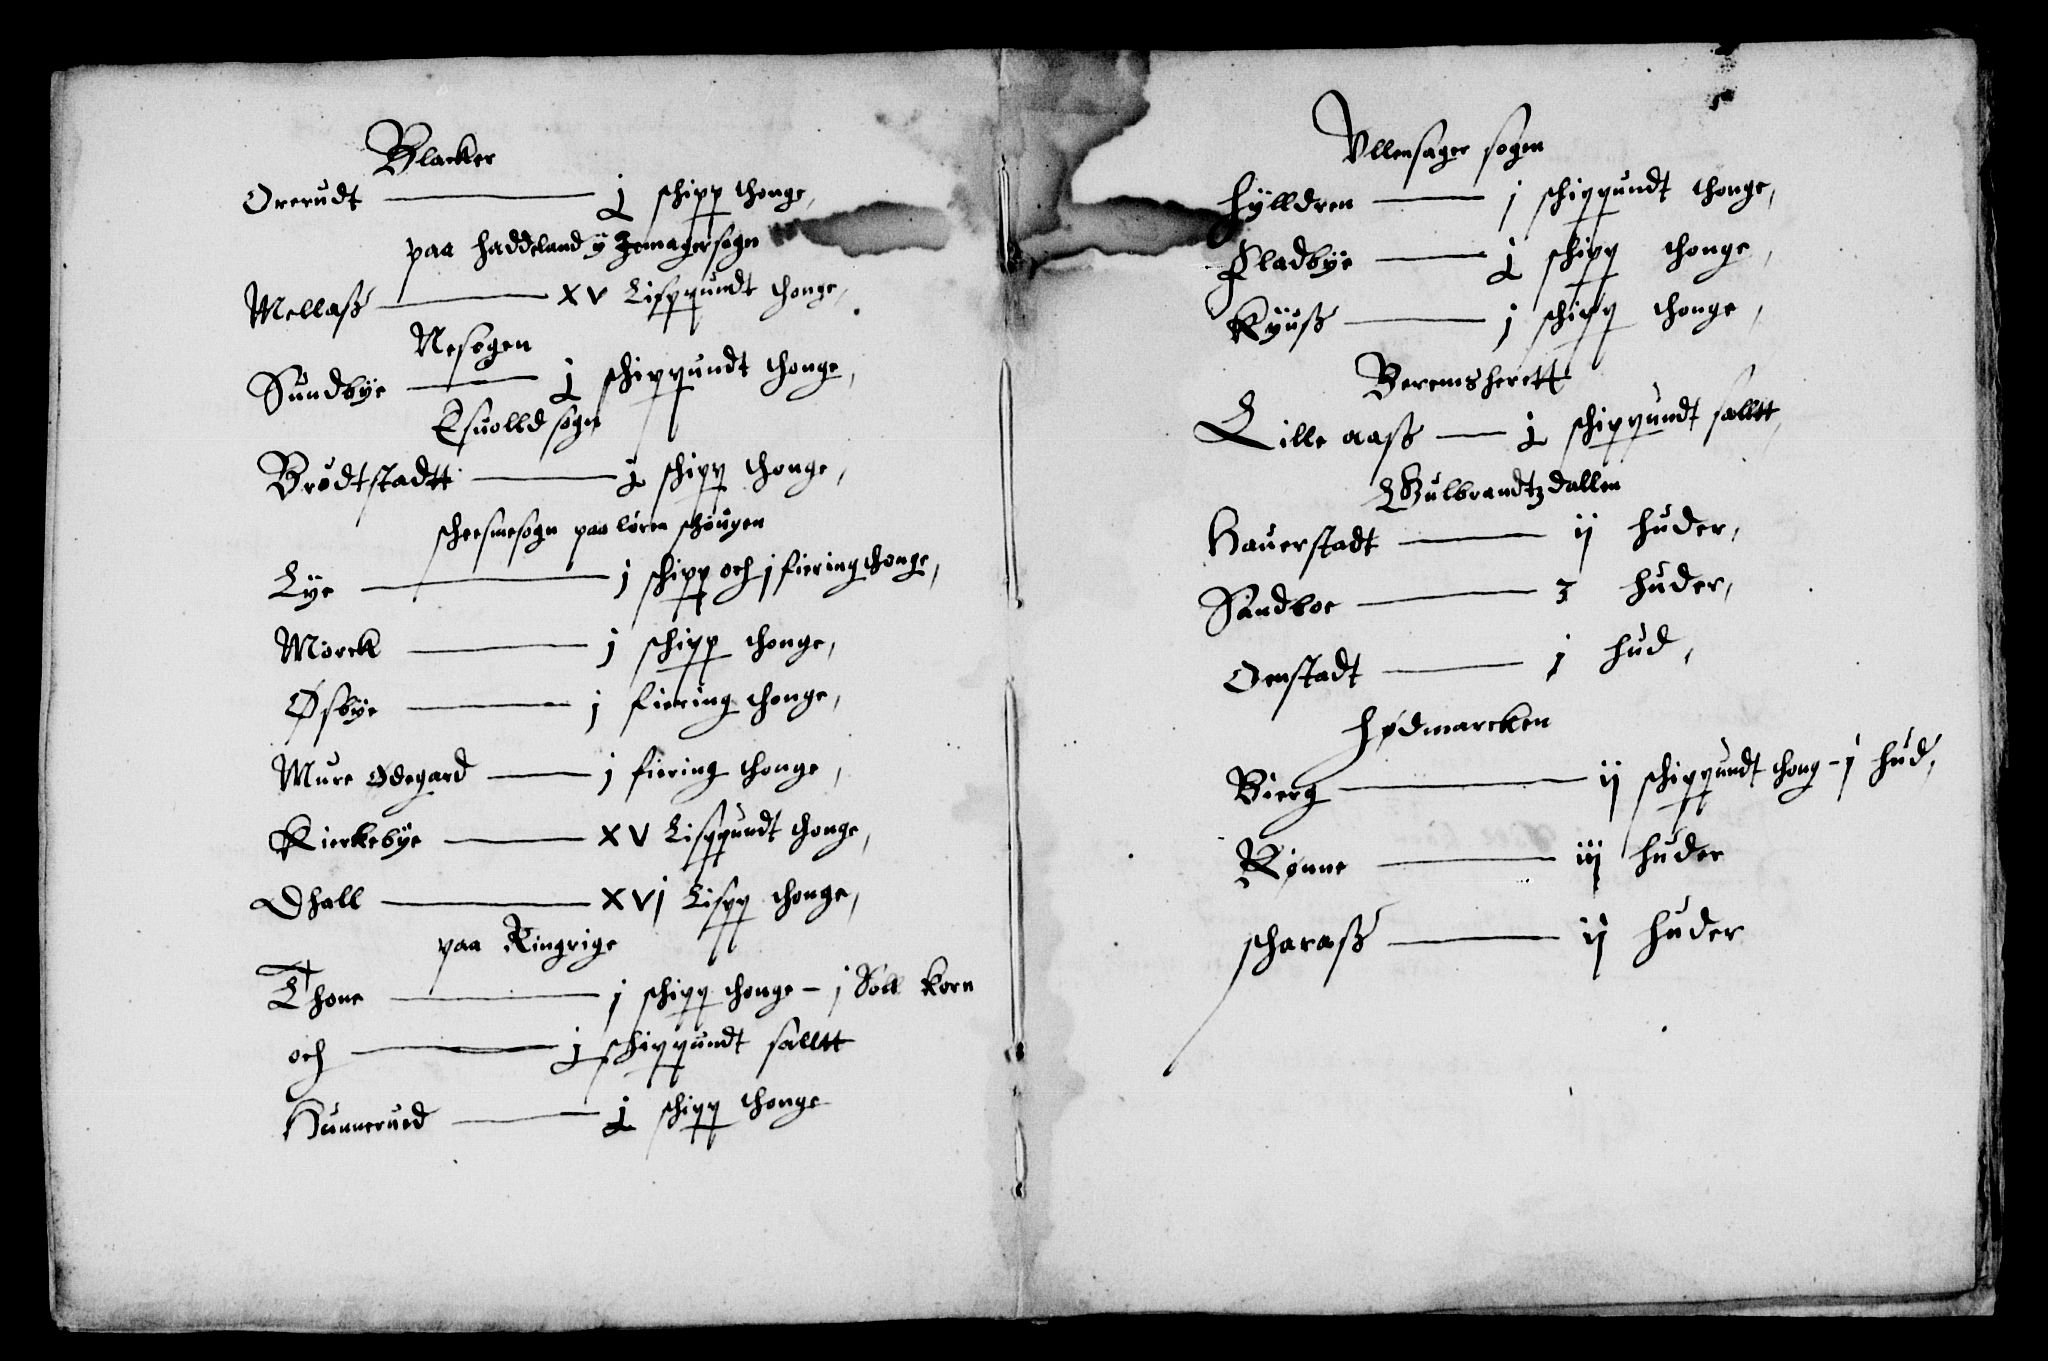 Blacker
Ouerudt — j schipp thonge,
paa Haddeland y Jemagersogn
Mellaß — XV Lisppundt thonge,
Nesogen
Sundbÿe — j schippundt thonge,
Esuolld sogn
Brødtstadtt — j schipp thonge,
scheesmesogn paa løren schougen
Lÿe — j schipp och j fiering thonge,
Mörck — j schipp thonge,
Øsbÿe — j fiering thonge,
Mure ødegard — j fiering thonge,
Kierkebÿe — XV Lisppundt thonge,
Dhall — XVj Lispp thonge,
paa Ringrige
Thone — j schipp thonge – j Soll korn
och — j schippundt salltt
Hunnerued — j schipp thonge
Vllensager sogen
Hÿlldren — j schippundt thonge,
Fladbÿe — j schipp thonge,
Kÿuß — j schipp thonge,
Beremsherett
Lille aaß — j schippundt salltt,
Gulbrandtzdallen
Hauerstadt — ij huder,
Sandboe — 3 huder,
Oenstadt — j hud,
Hødmarcken
Bierg — ij schippundt thong – j hud,
Rønne — iij huder
scharaß — ij huder